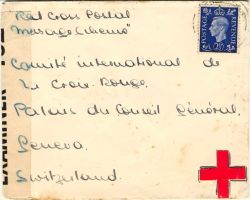 Red Cross Postal
Message Scheme"
Comité international de
la Croix-Rouge,
Palais du Conseil Général,
Geneva,
Switzerland.
POSTAGE
REVENUE
2½
EXAMINER